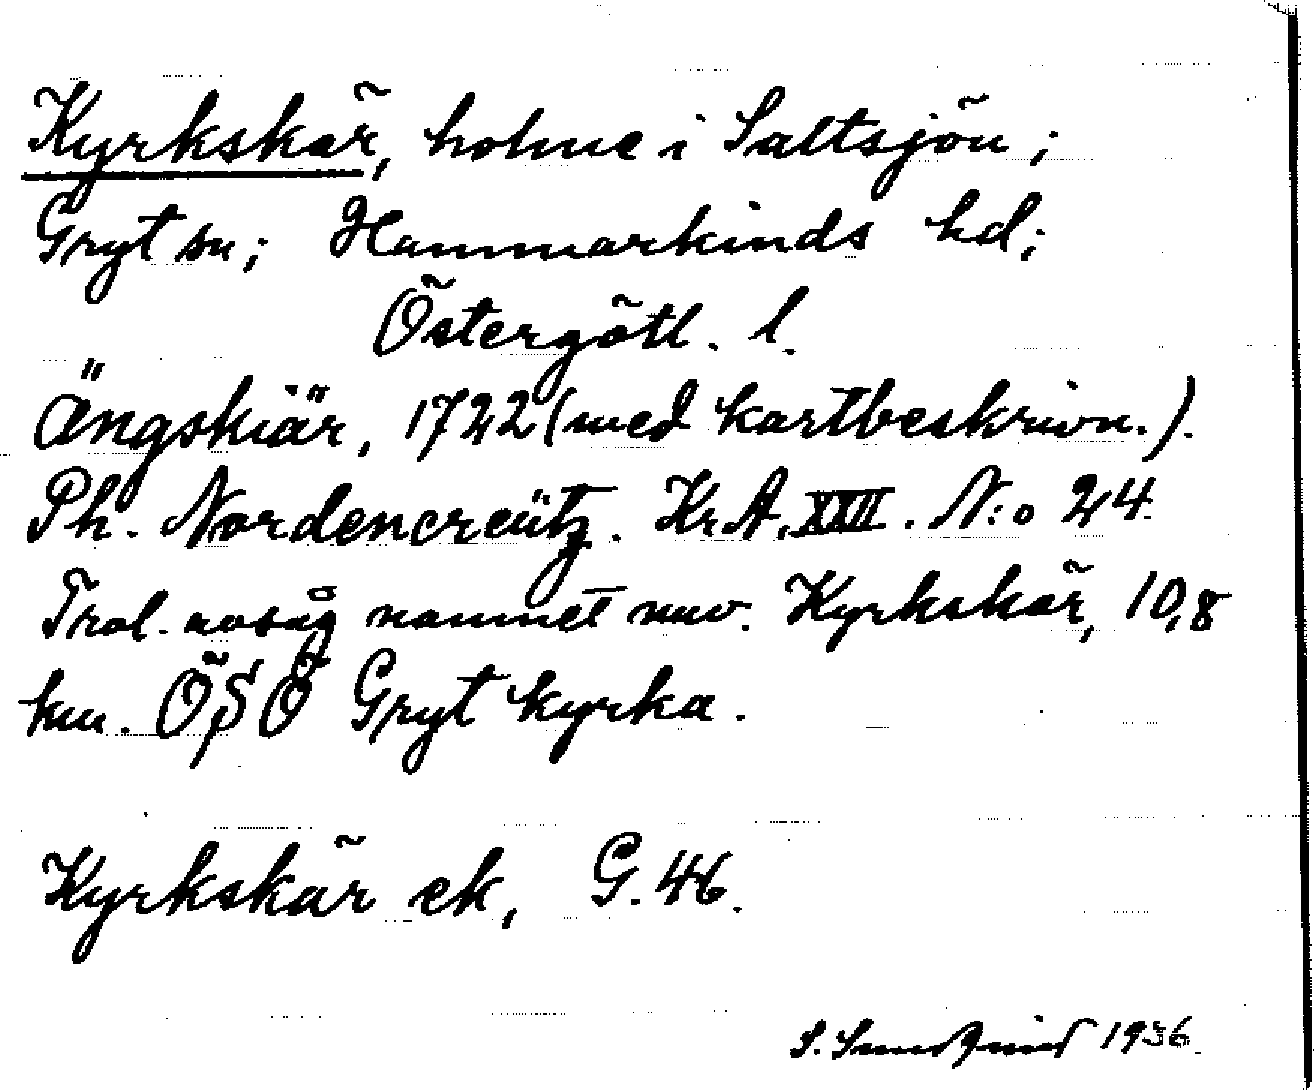 Kyrkskär, holme i Saltsjön;
Gryt sn; Hammarkinds hd;
Östergötl. l.
Ängskiär, 1722 (med kartbeskrivn.).
Ph. Nordencreütz. Kr.A. XXII. N:o 24.
Trol. avsåg namnet nuv. Kyrkskär, 10,8
km. ÖSÖ Gryt kyrka.
Kyrkskär ek, G. 46.
S. 1936.